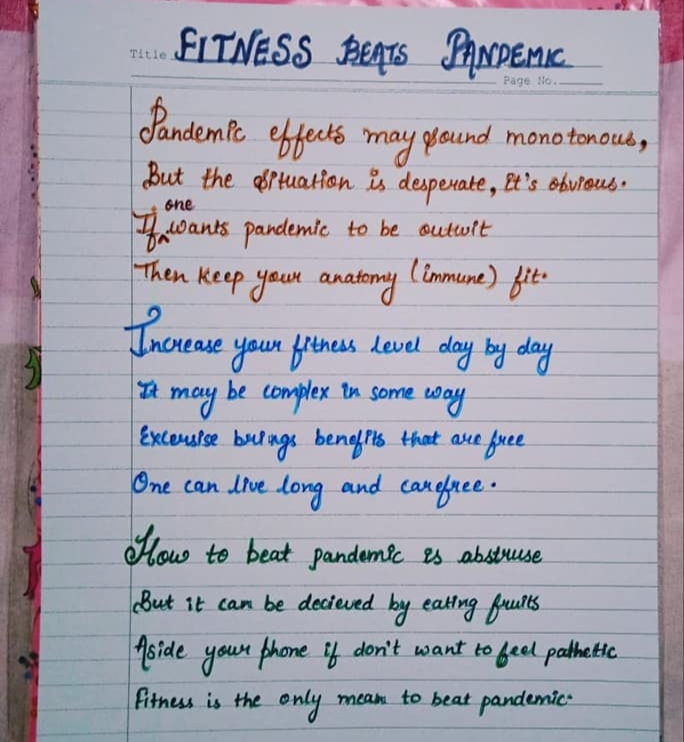 Title FITNESS BEATS PANDEMIC
Page No.
Pandemic effects may sound monotonous,
But the situation is desperate, it's obvious.
one
If wants pandemic to be outwit
Then keep your anatomy (immune) fit.
Increase your fitness level day by day
It may be complex in some way
Excersise brings benefits that are free
One can live long and carefree.
How to beat pandemic is abstruse
But it can be decieved by eating fruits
Aside your phone if don't want to feel pathetic
Fitness is the only mean to beat pandemic.